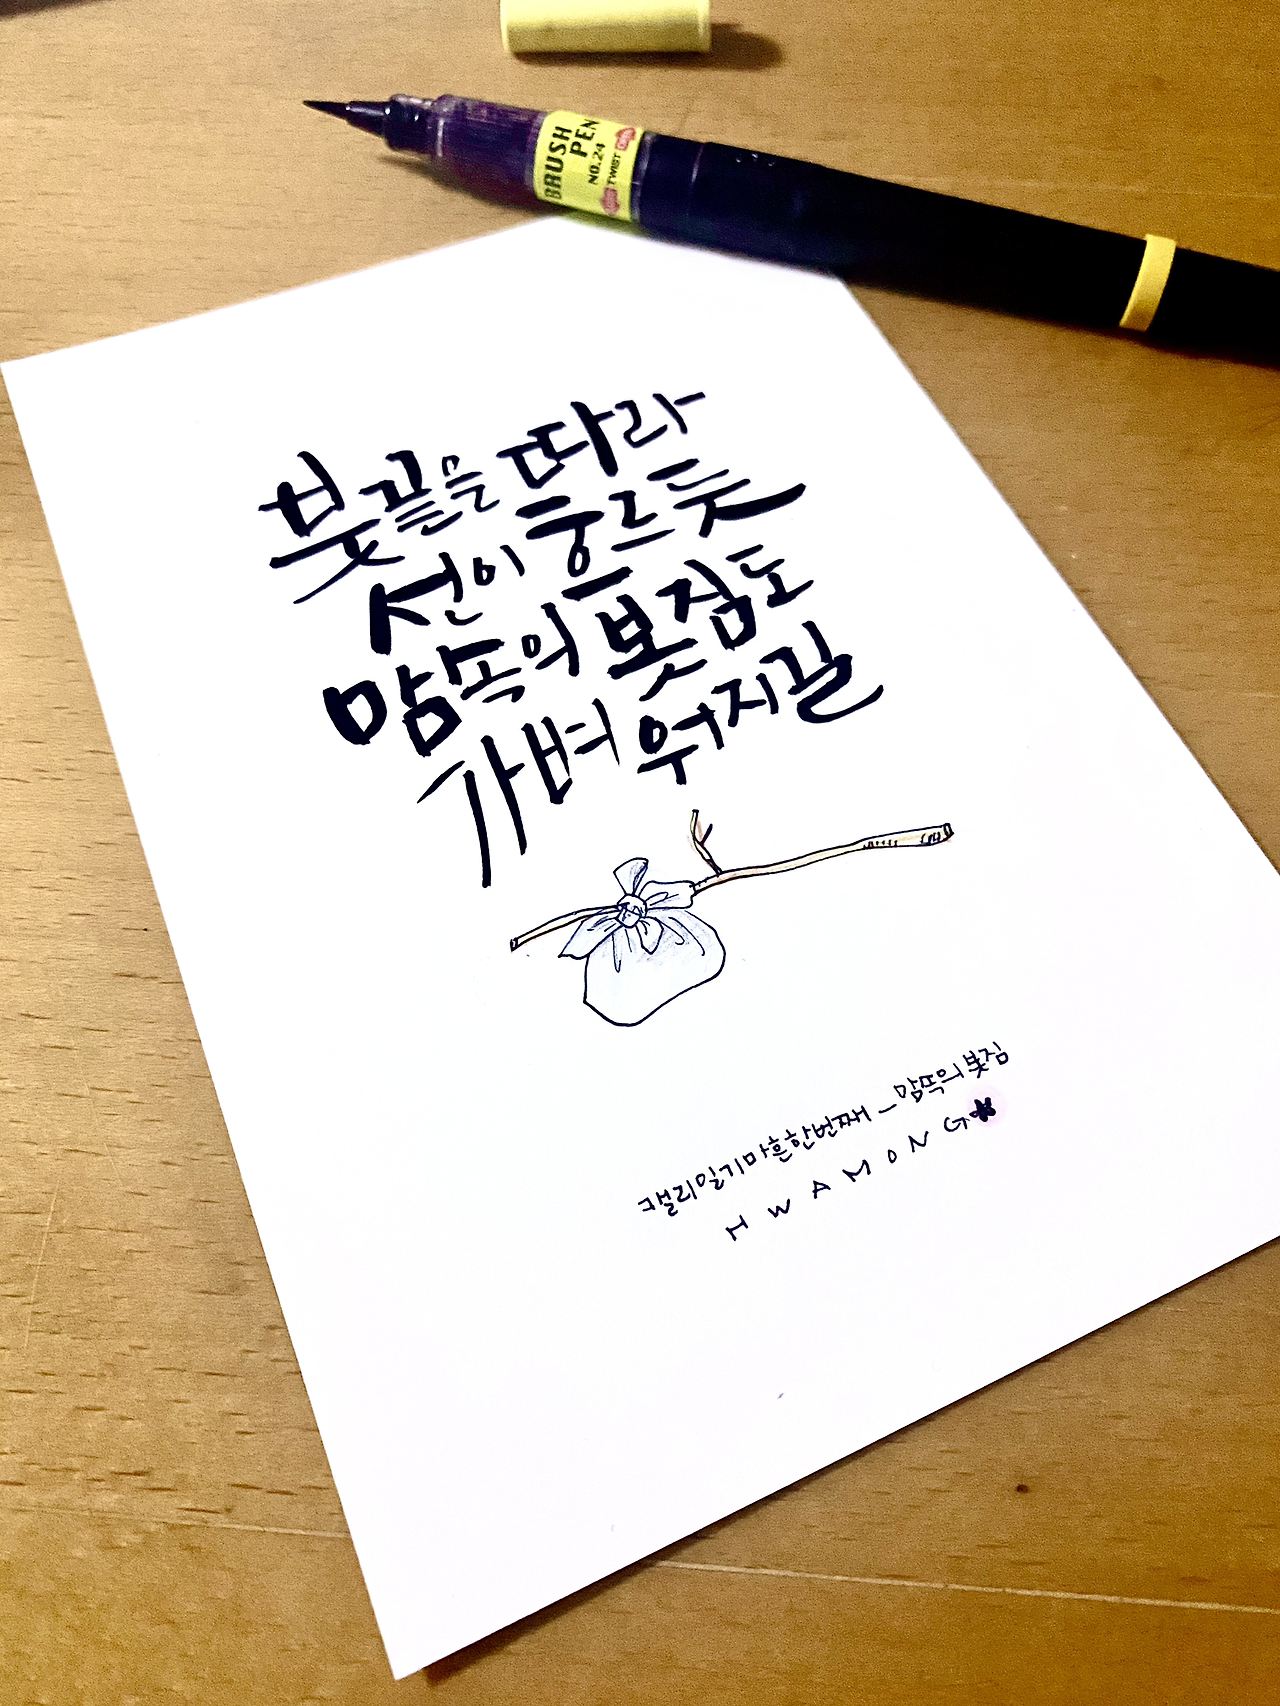 BRUSH
PEN
NO.24
TWIST
붓끝을 따라
선이 흐르듯
맘속의 봇짐도
가벼워지길
캘리일기마흔한번째_맘속의봇짐
HWAMONG